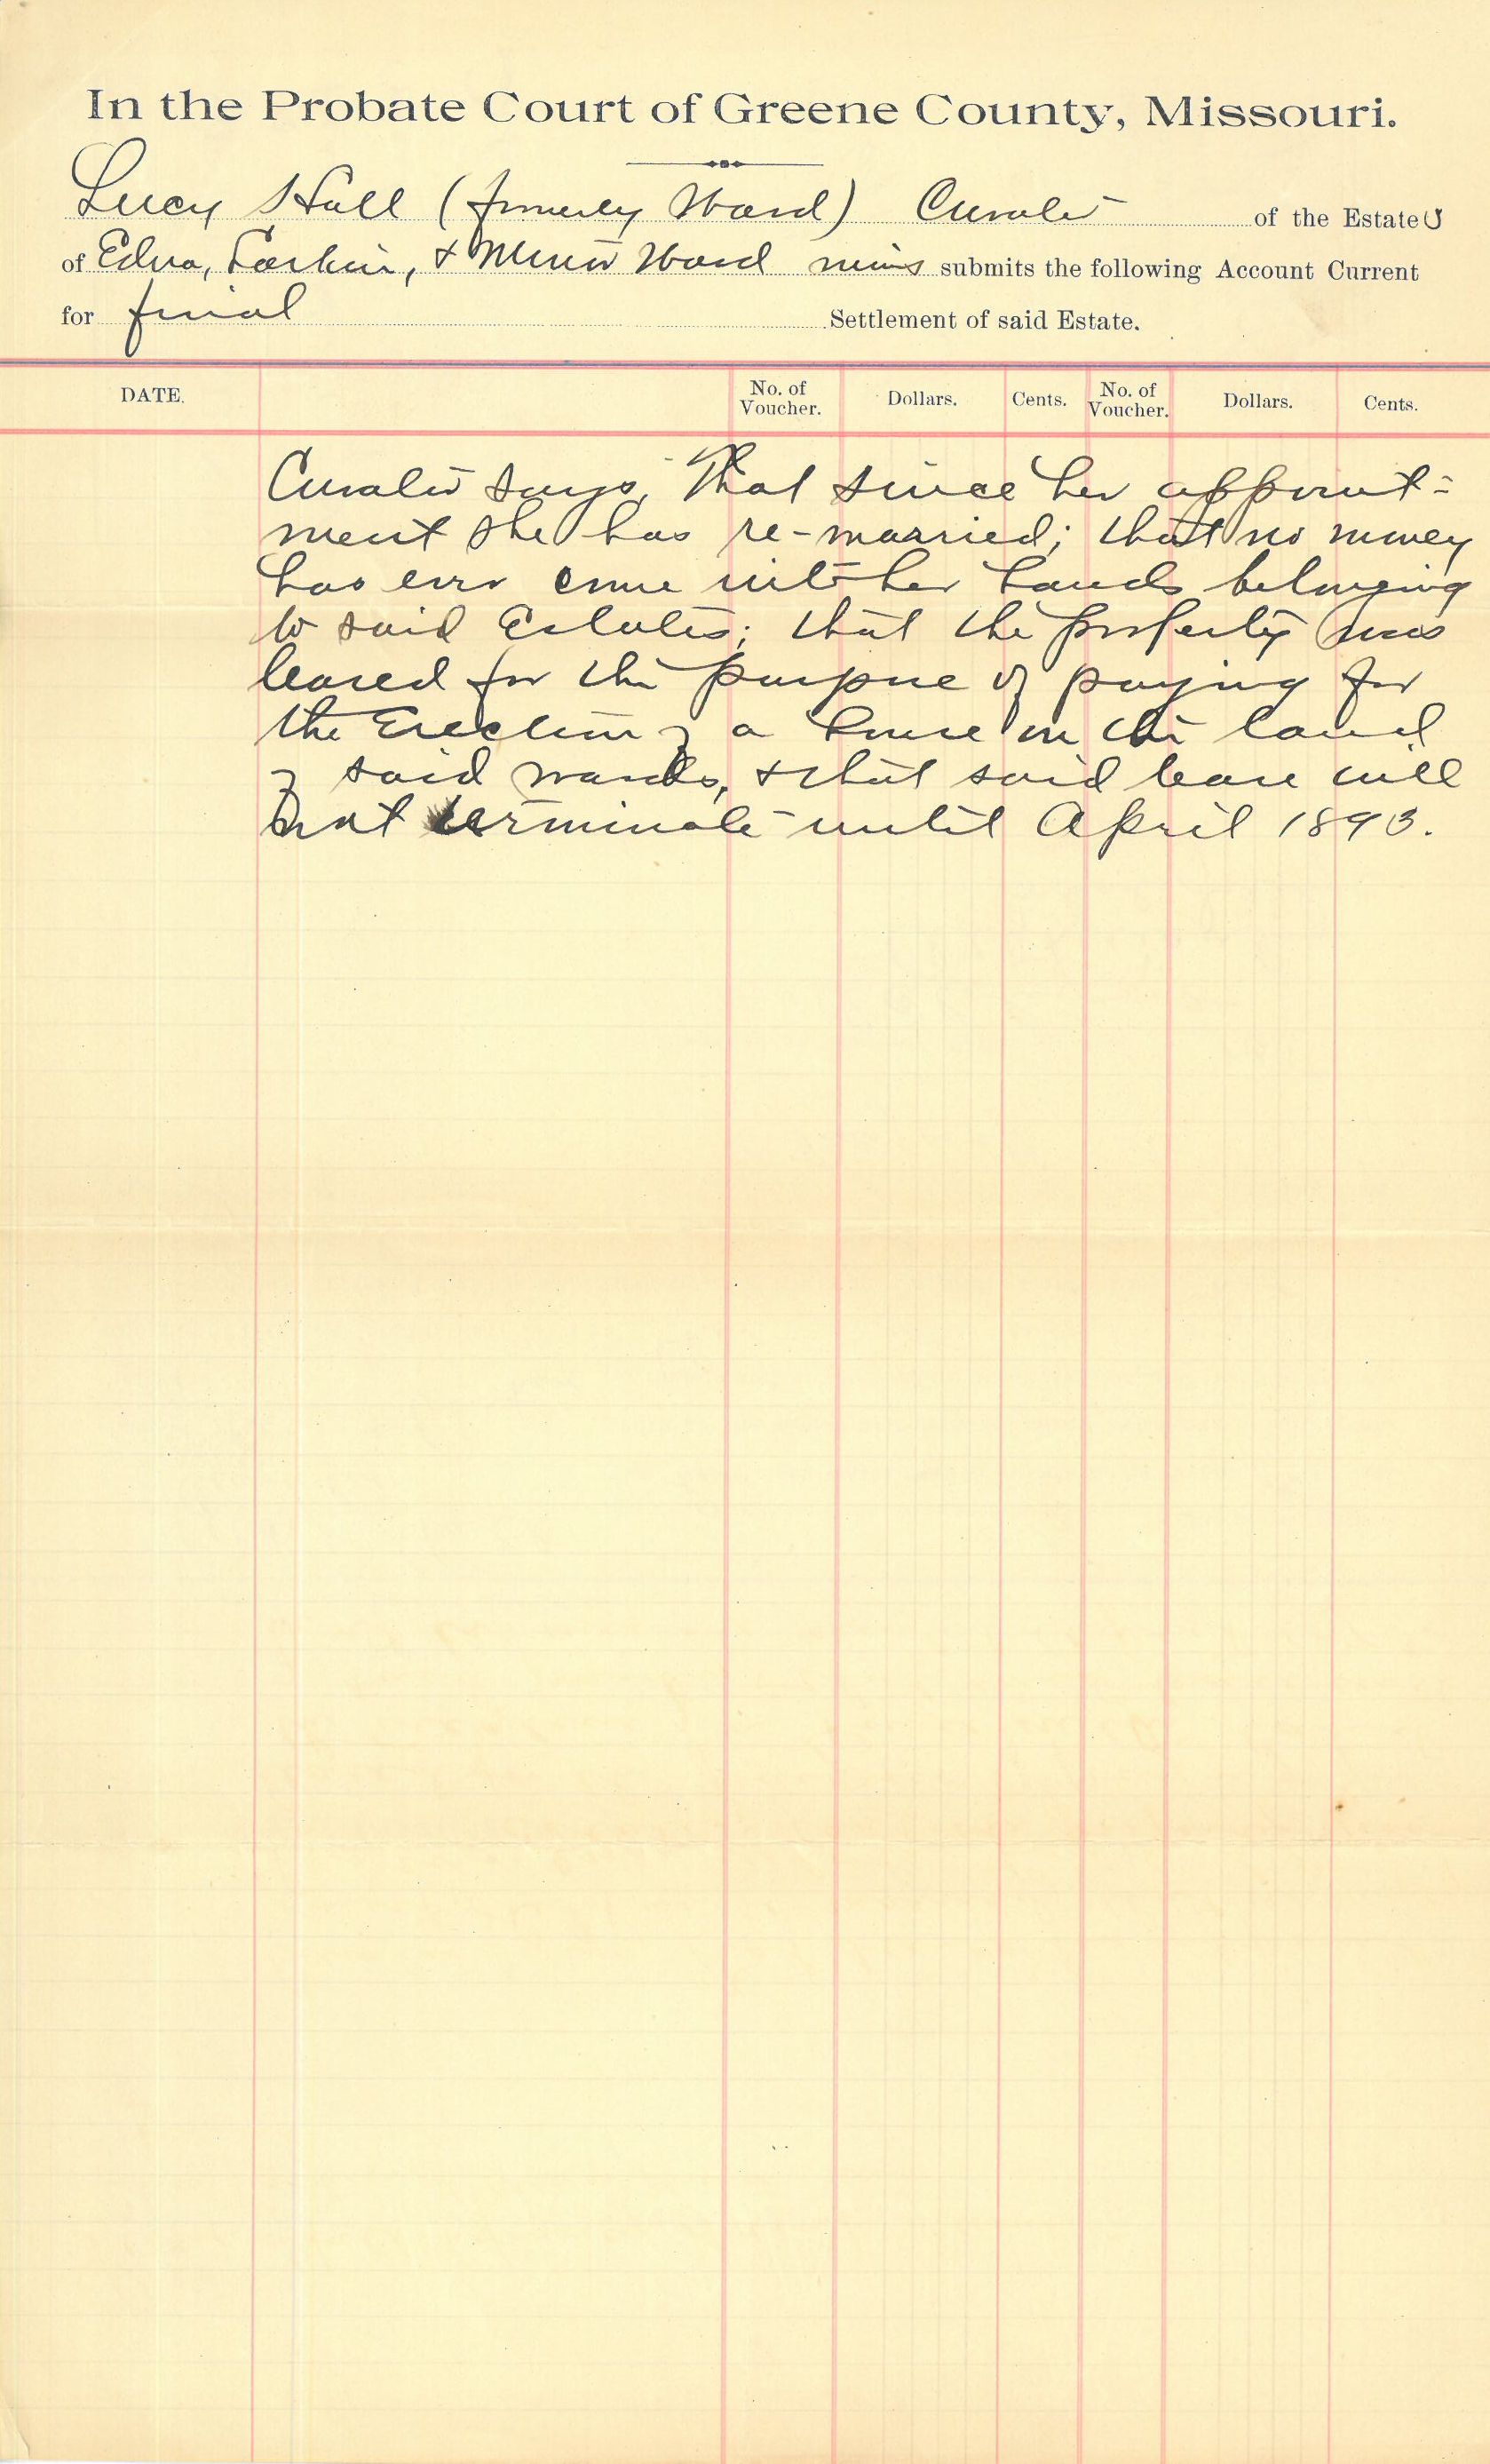 In the Probate Court of Greene County, Missouri.
Lucy Hall (formerly Ward) Curator of the Estates
of Edna, Larkin, & Minor Ward minors submits the following Account Current
for final Settlement of said Estate.
DATE. No. of Voucher. Dollars. Cents. No. of Voucher. Dollars. Cents.
Curator says, That since her appoint=
ment she has re-married; that no money
has ever come into her hands belonging
to said Estates; that the property was
leased for the purpose of paying for
the Erection of a house on the land
of said wards, & that said lease will
not terminate until April 1893.